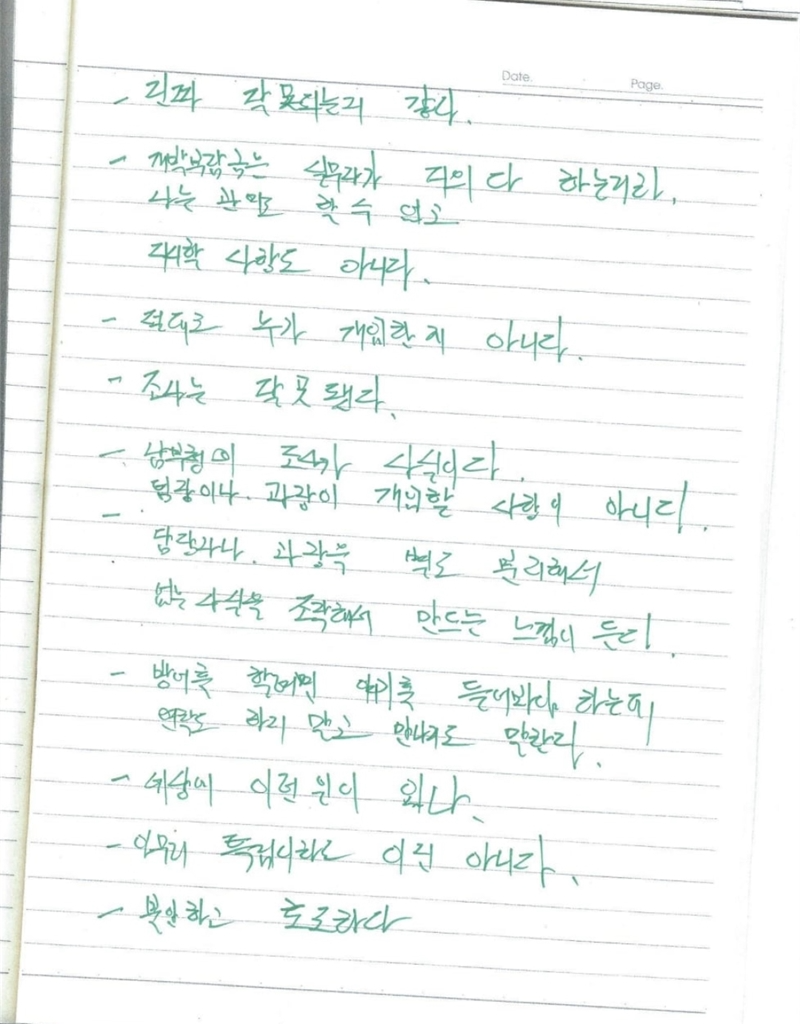 Date. Page.
- 진짜 잘못되는거 같다.
- 개발부담금은 실무자가 거의 다 하는거라,
나는 관여도 할 수 없고
지시할 사항도 아니다.
- 절대로 누가 개입한 게 아니다.
- 조사는 잘못됐다.
- 조사가 사실이다.
- 팀장이나. 과장이 개입할 사항이 아니다.
담당자나. 과장을 별도 분리해서
없는 사실을 조작해서 만드는 느낌이 든다.
- 방어를 할려면 얘기를 들어봐야 하는데
연락도 하지 말고 만나지도 말란다.
- 세상에 이런 일이 있나.
- 아무리 특검이라도 이건 아니다.
- 불안하고 초조하다